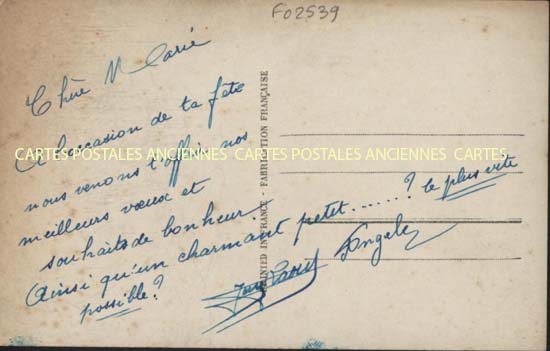 F02539
Chère Marie
A l'occasion de ta fête
nous venons t'offrir nos
meilleurs vœux et
souhaits de bonheur
Ainsi qu'un charmant petit.......? le plus vite
possible?
Angele
PRINTED IN FRANCE - FABRICATION FRANÇAISE
CARTES POSTALES ANCIENNES CARTES POSTALES ANCIENNES CARTES